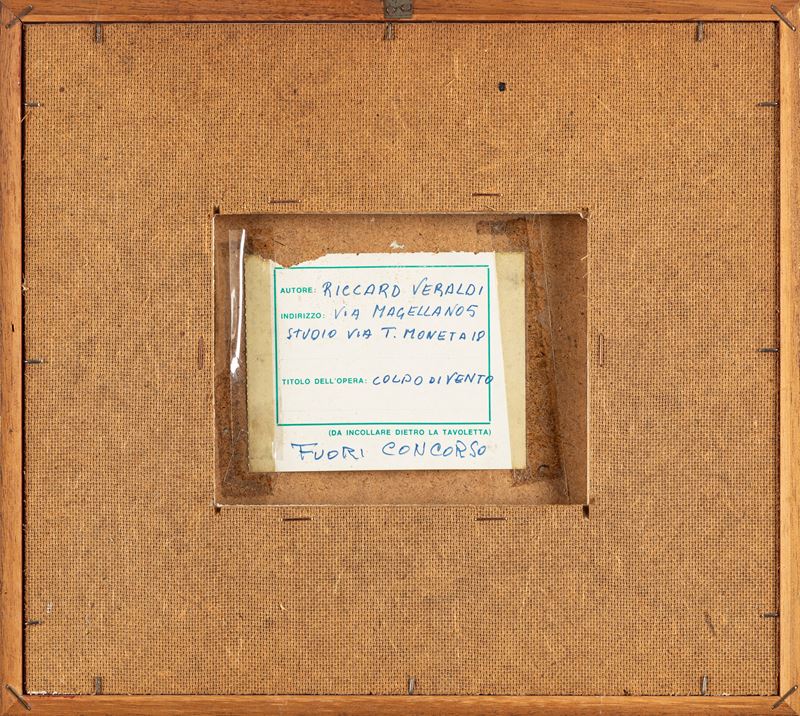 AUTORE: RICCARD VERALDI
INDIRIZZO: VIA MAGELLANO 5
STUDIO VIA T. MONETA 18
TITOLO DELL'OPERA: COLPO DI VENTO
(DA INCOLLARE DIETRO LA TAVOLETTA)
FUORI CONCORSO